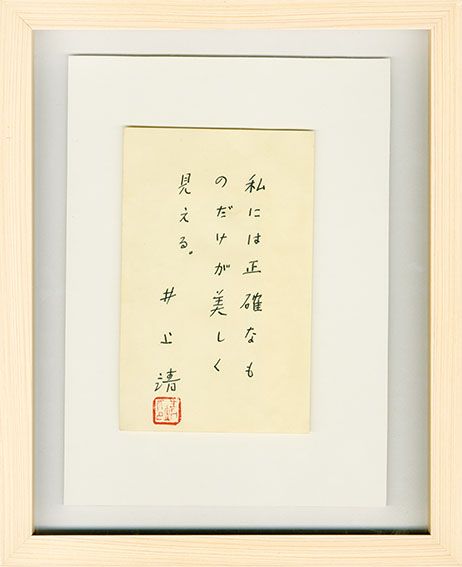 私には正確なも
のだけが美しく
見える。 井上靖